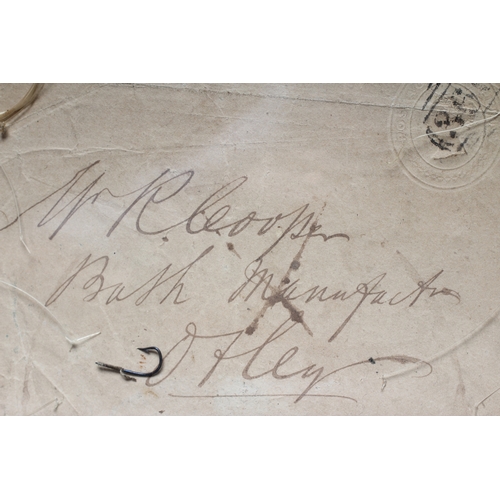 Mr R. Cooper
Bath Manufactr
Otley